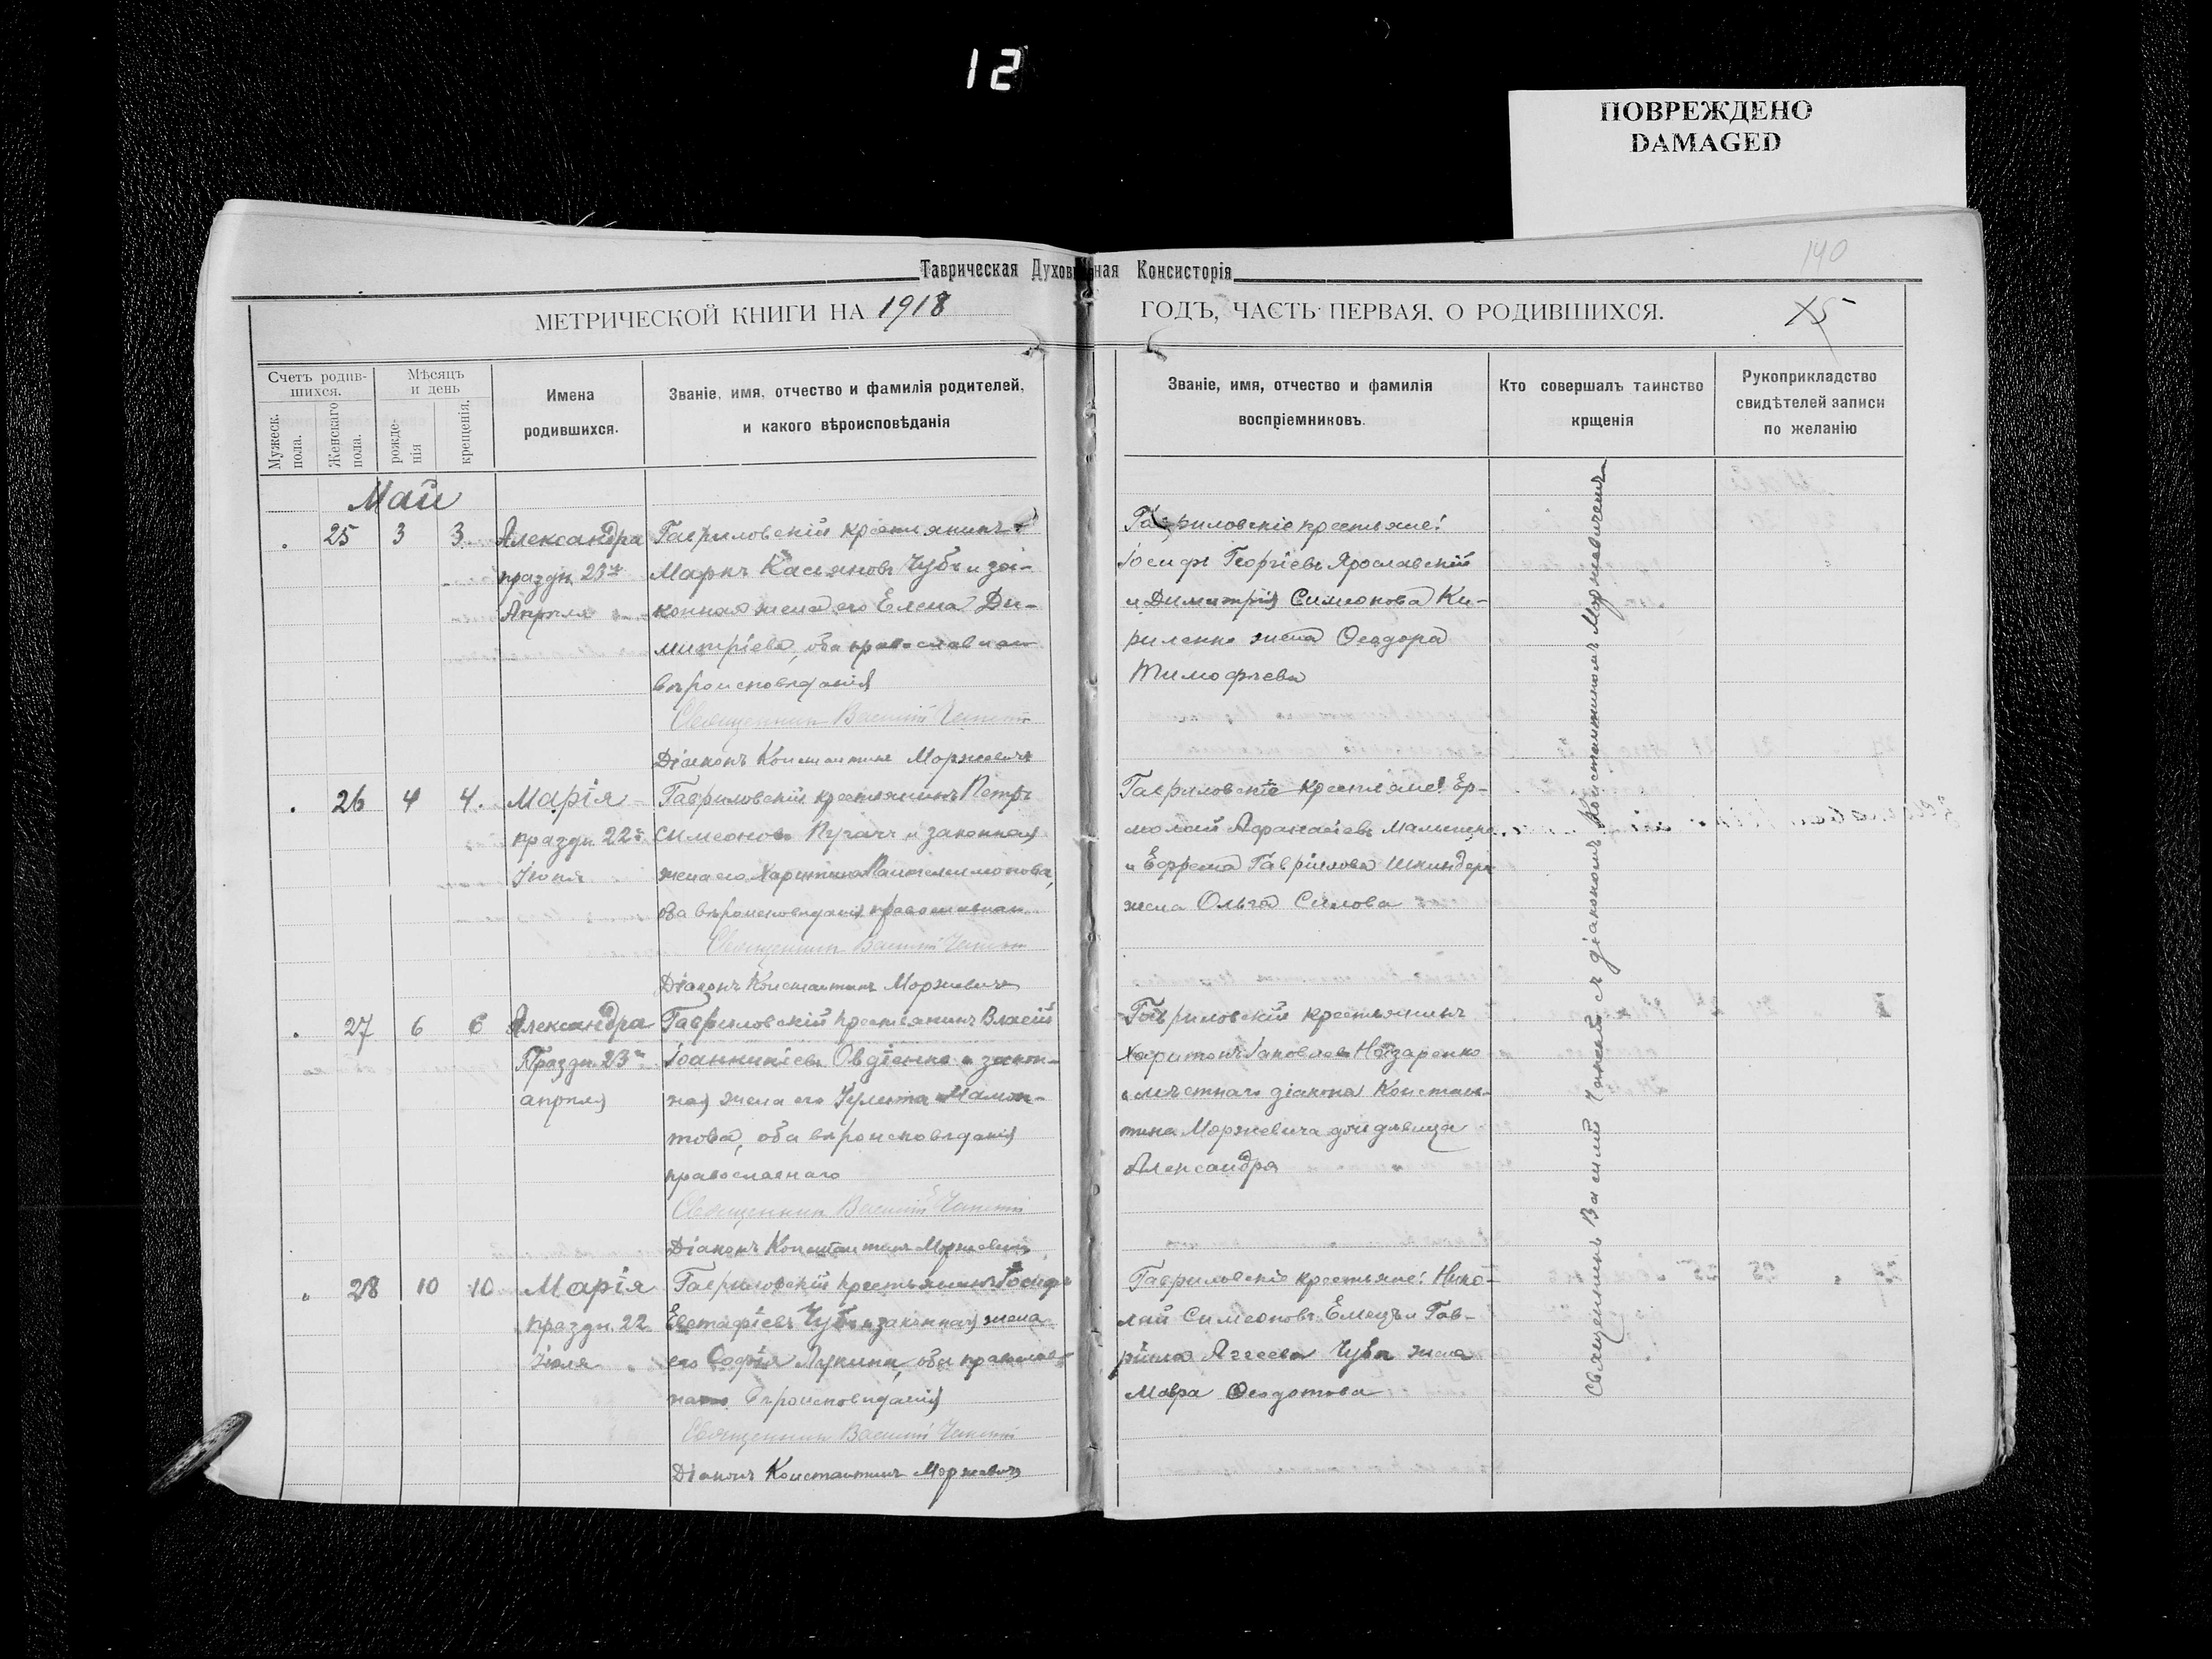 12
ПОВРЕЖДЕНО
DAMAGED
140
Таврическая Духовная Консисторія
МЕТРИЧЕСКОЙ КНИГИ НА 1918
ГОДЪ, ЧАСТЬ ПЕРВАЯ. О РОДИВШИХСЯ.
Х5
Счетъ родив-
шихся.
Мужеск.
пола.
Женскаго
пола.
Мѣсяцъ
и день
рожде-
нія
крещенія.
Имена
родившихся.
Званіе, имя, отчество и фамилія родителей,
и какого вѣроисповѣданія
Званіе, имя, отчество и фамилія
воспріемниковъ.
Кто совершалъ таинство
крщенія
Рукоприкладство
свидѣтелей записи
по желанію
Май
25 3 3
Александра
праздн 23го
Апрѣля
Гавриловскій крестьянинъ
Маркъ Касьяновъ Чубъ и за-
конная жена его Елена Ди-
митріева, оба православнаго
вѣроисповѣданія
Священникъ Василій
Діаконъ Константинъ Моржевичъ
Гавриловскіе крестьяне:
Іосифъ Георгіевъ Ярославскій
и Димитрія Симеонова Ки-
риленко жена Ѳеодора
Тимофѣева
26 4 4.
Марія
праздн. 22го
Іюля
Гавриловскій крестьянинъ Петръ
Симеоновъ Пугачъ и законная
жена его Харитина Пантелеимонова,
оба вѣроисповѣданія православнаго
Священникъ Василій
Діаконъ Константинъ Моржевичъ
Гавриловскіе крестьяне: Ер-
молай Афанасіевъ
и Ефрема Гавріилова Шкиндера
жена Ольга Силова
27 6 6
Александра
Праздн. 23го
апрѣля
Гавриловскій крестьянинъ Власій
Іоанникіевъ Овдіенко и закон-
ная жена его Іулита Мамон-
това, оба вѣроисповѣданія
православнаго
Священникъ Василій
Діаконъ Константинъ Моржевичъ
Гавриловскій крестьянинъ
Харитонъ Іаковлевъ Назаренко
и мѣстнаго діакона Констан-
тина Моржевича дочь дѣвица
Александра
28 10 10
Марія
праздн. 22
Іюля
Гавриловскій крестьянинъ Іосифъ
Евстафіевъ Чубъ и законная жена
его Софія Лукина, оба православ-
наго вѣроисповѣданія
Священникъ Василій
Діаконъ Константинъ Моржевичъ
Гавриловскіе крестьяне: Нико-
лай Симеоновъ Емецъ и Гав-
ріила Аггеева Чуба жена
Мавра Ѳеодотова
Священникъ Василій съ діакономъ Константиномъ Моржевичемъ